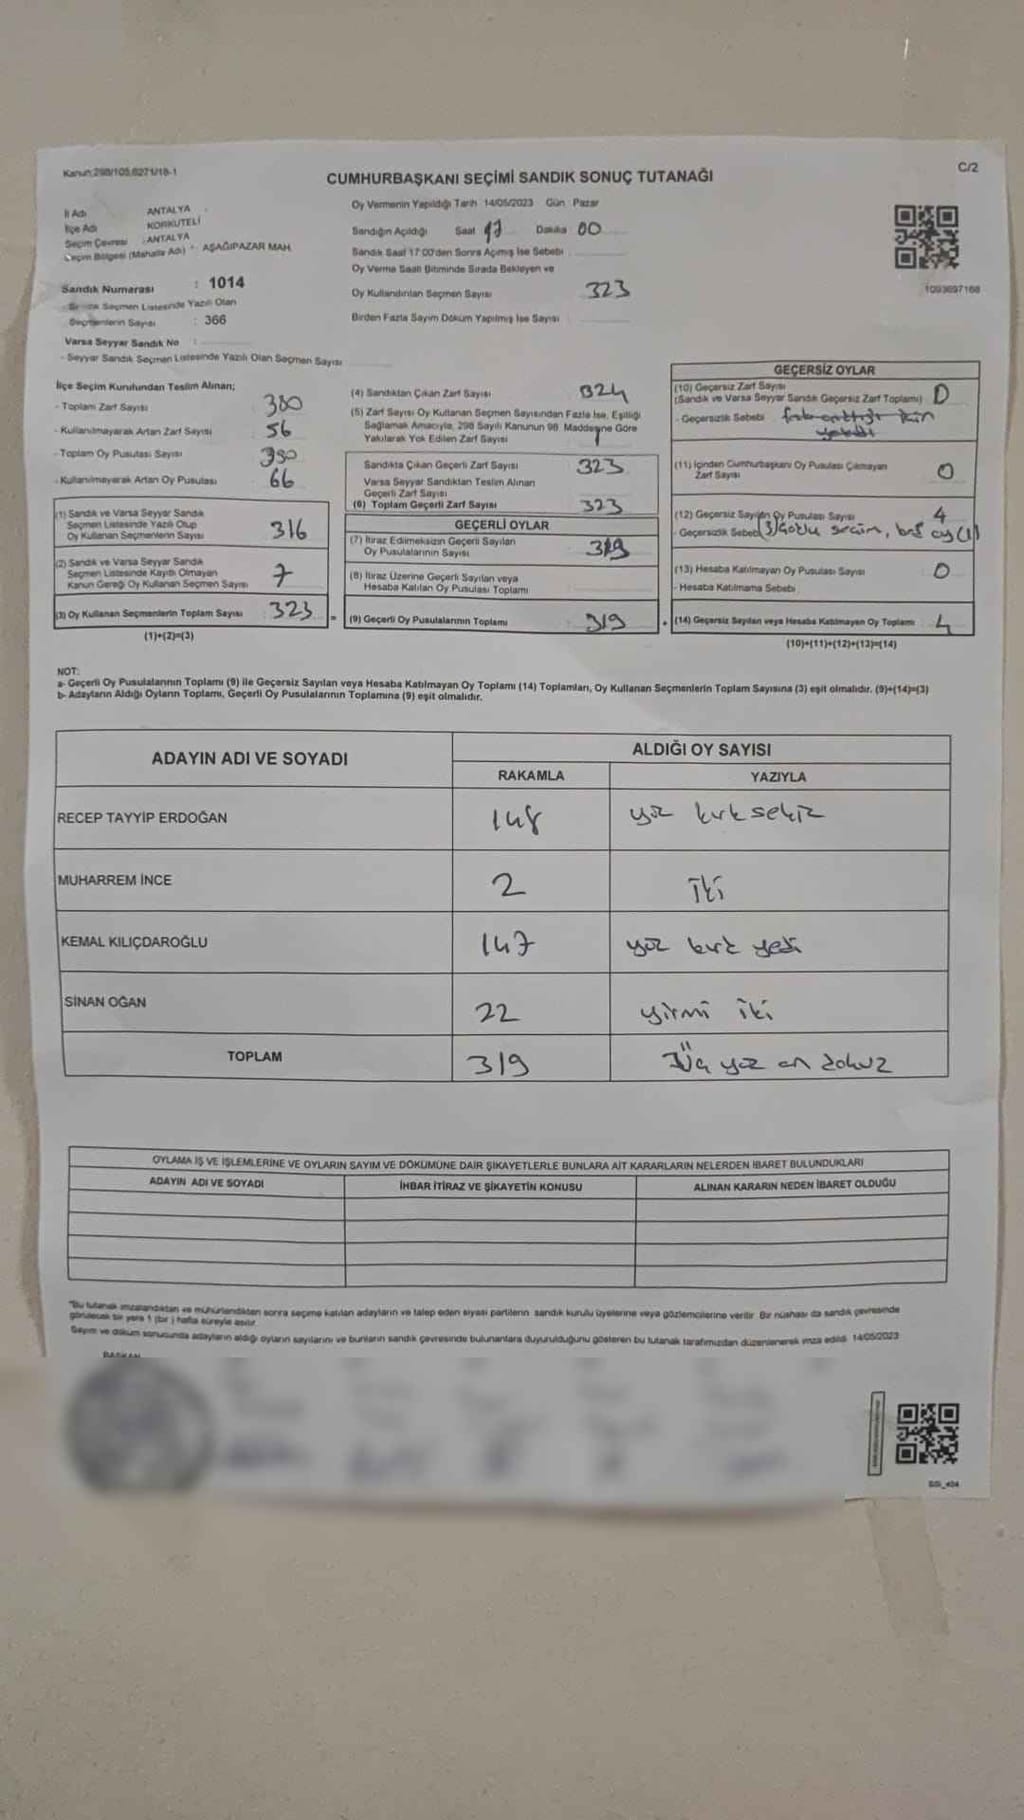 Kanun:298/105,6271/18-1
C/2
CUMHURBAŞKANI SEÇİMİ SANDIK SONUÇ TUTANAĞI
İl Adı ANTALYA
İlçe Adı KORKUTELİ
Seçim Çevresi : ANTALYA
Seçim Bölgesi (Mahalle Adı) : AŞAĞIPAZAR MAH.
Sandık Numarası : 1014
Seçmen Listesinde Yazılı Olan
Seçmenlerin Sayısı : 366
Varsa Seyyar Sandık No :
- Seyyar Sandık Seçmen Listesinde Yazılı Olan Seçmen Sayısı
Oy Vermenin Yapıldığı Tarih 14/05/2023 Gün : Pazar
Sandığın Açıldığı Saat 17 Dakika 00
Sandık Saat 17:00'den Sonra Açılmış İse Sebebi
Oy Verme Saati Bitiminde Sırada Bekleyen ve
Oy Kullandırılan Seçmen Sayısı 323
Birden Fazla Sayım Döküm Yapılmış İse Sayısı
1093697168
İlçe Seçim Kurulundan Teslim Alınan;
- Toplam Zarf Sayısı 380
- Kullanılmayarak Artan Zarf Sayısı 56
- Toplam Oy Pusulası Sayısı 390
- Kullanılmayarak Artan Oy Pusulası 66
(1) Sandık ve Varsa Seyyar Sandık
Seçmen Listesinde Yazılı Olup
Oy Kullanan Seçmenlerin Sayısı 316
(2) Sandık ve Varsa Seyyar Sandık
Seçmen Listesinde Kayıtlı Olmayan
Kanun Gereği Oy Kullanan Seçmen Sayısı 7
(3) Oy Kullanan Seçmenlerin Toplam Sayısı 323
(1)+(2)=(3)
(4) Sandıktan Çıkan Zarf Sayısı 324
(5) Zarf Sayısı Oy Kullanan Seçmen Sayısından Fazla İse, Eşitliği
Sağlamak Amacıyla, 298 Sayılı Kanunun 98. Maddesine Göre
Yakılarak Yok Edilen Zarf Sayısı 1
Sandıkta Çıkan Geçerli Zarf Sayısı 323
Varsa Seyyar Sandıktan Teslim Alınan
Geçerli Zarf Sayısı
(6) Toplam Geçerli Zarf Sayısı 323
GEÇERLİ OYLAR
(7) İtiraz Edilmeksizin Geçerli Sayılan
Oy Pusulalarının Sayısı 319
(8) İtiraz Üzerine Geçerli Sayılan veya
Hesaba Katılan Oy Pusulası Toplamı
(9) Geçerli Oy Pusulalarının Toplamı 319
GEÇERSİZ OYLAR
(10) Geçersiz Zarf Sayısı
(Sandık ve Varsa Seyyar Sandık Geçersiz Zarf Toplamı) 0
- Geçersizlik Sebebi
(11) İçinden Cumhurbaşkanı Oy Pusulası Çıkmayan
Zarf Sayısı 0
(12) Geçersiz Sayılan Oy Pusulası Sayısı 4
- Geçersizlik Sebebi (3) Çoklu seçim, boş oy (1)
(13) Hesaba Katılmayan Oy Pusulası Sayısı 0
- Hesaba Katılmama Sebebi
(14) Geçersiz Sayılan veya Hesaba Katılmayan Oy Toplamı 4
(10)+(11)+(12)+(13)=(14)
NOT:
a- Geçerli Oy Pusulalarının Toplamı (9) ile Geçersiz Sayılan veya Hesaba Katılmayan Oy Toplamı (14) Toplamları, Oy Kullanan Seçmenlerin Toplam Sayısına (3) eşit olmalıdır. (9)+(14)=(3)
b- Adayların Aldığı Oyların Toplamı, Geçerli Oy Pusulalarının Toplamına (9) eşit olmalıdır.
ADAYIN ADI VE SOYADI
ALDIĞI OY SAYISI
RAKAMLA YAZIYLA
RECEP TAYYİP ERDOĞAN 148 yüz kırk sekiz
MUHARREM İNCE 2 iki
KEMAL KILIÇDAROĞLU 147 yüz kırk yedi
SİNAN OĞAN 22 yirmi iki
TOPLAM 319 Üç yüz on dokuz
OYLAMA İŞ VE İŞLEMLERİNE VE OYLARIN SAYIM VE DÖKÜMÜNE DAİR ŞİKAYETLERLE BUNLARA AİT KARARLARIN NELERDEN İBARET BULUNDUKLARI
ADAYIN ADI VE SOYADI İHBAR İTİRAZ VE ŞİKAYETİN KONUSU ALINAN KARARIN NEDEN İBARET OLDUĞU
"Bu tutanak imzalandıktan ve mühürlendikten sonra seçime katılan adayların ve talep eden siyasi partilerin sandık kurulu üyelerine veya gözlemcilerine verilir. Bir nüshası da sandık çevresinde
görülecek bir yere 1 (bir) hafta süreyle asılır.
Sayım ve döküm sonucunda adayların aldığı oyların sayılarını ve bunların sandık çevresinde bulunanlara duyurulduğunu gösteren bu tutanak tarafımızdan düzenlenerek imza edildi. 14/05/2023
BAŞKAN